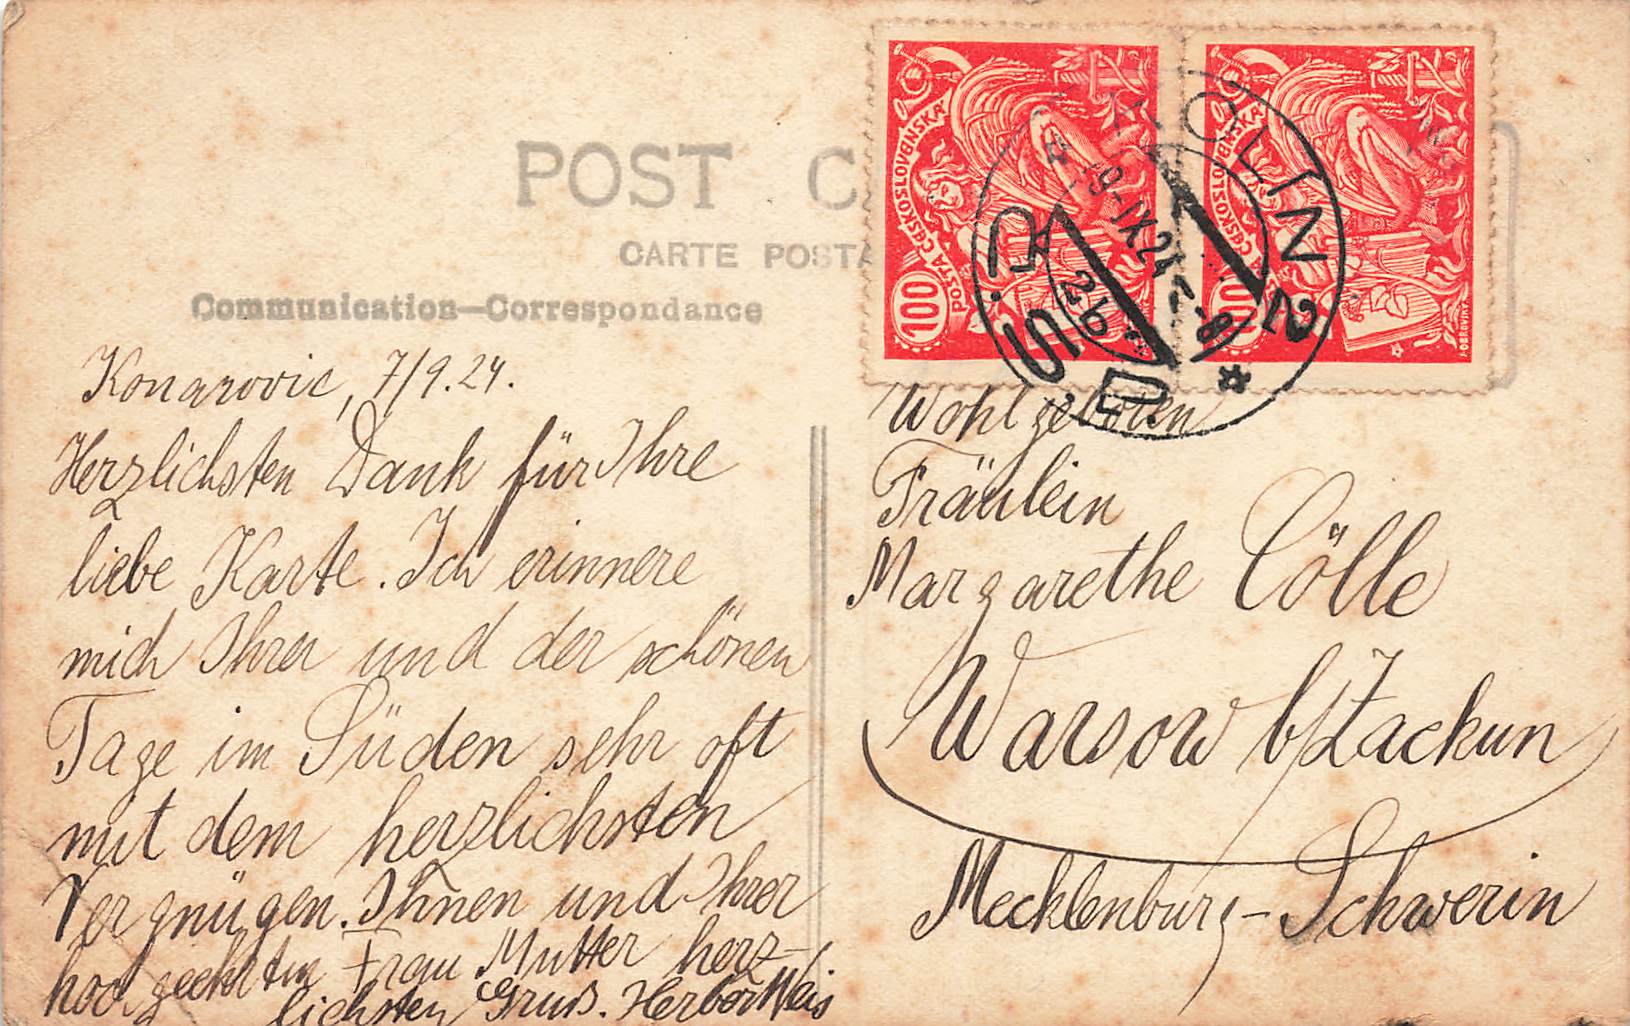 POST C
CARTE POSTA
Communication—Correspondance
POSTA ČESKOSLOVENSKÁ
100
POSTA ČESKOSLOVENSKÁ
100
KOLÍN 2
9.IX.24.-8
2b
Konarovic, 7/9.24.
Herzlichsten Dank für Ihre
liebe Karte. Ich erinnere
mich Ihrer und der schönen
Tage im Süden sehr oft
mit dem herzlichsten
Vergnügen. Ihnen und Ihrer
hochgeehrten Frau Mutter herz-
lichsten Gruß. Herbert Weis
Wohlgeboren
Fräulein
Margarethe Cölle
Warsow b/Zackun
Mecklenburg-Schwerin